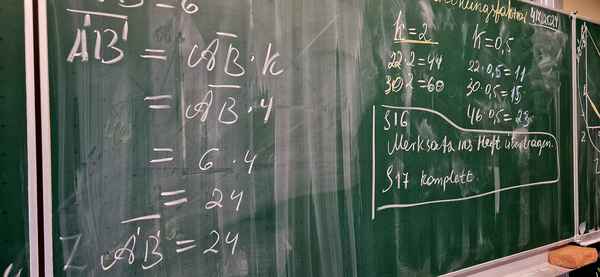 AB = 6
A'B' = AB · k
= AB · 4
= 6 · 4
= 24
A'B' = 24
k = 2
22·2=44
30·2=60
k = 0,5
22·0,5=11
30·0,5=15
46·0,5=23
S16
Merksatz ins Heft übertragen.
S17 komplett.